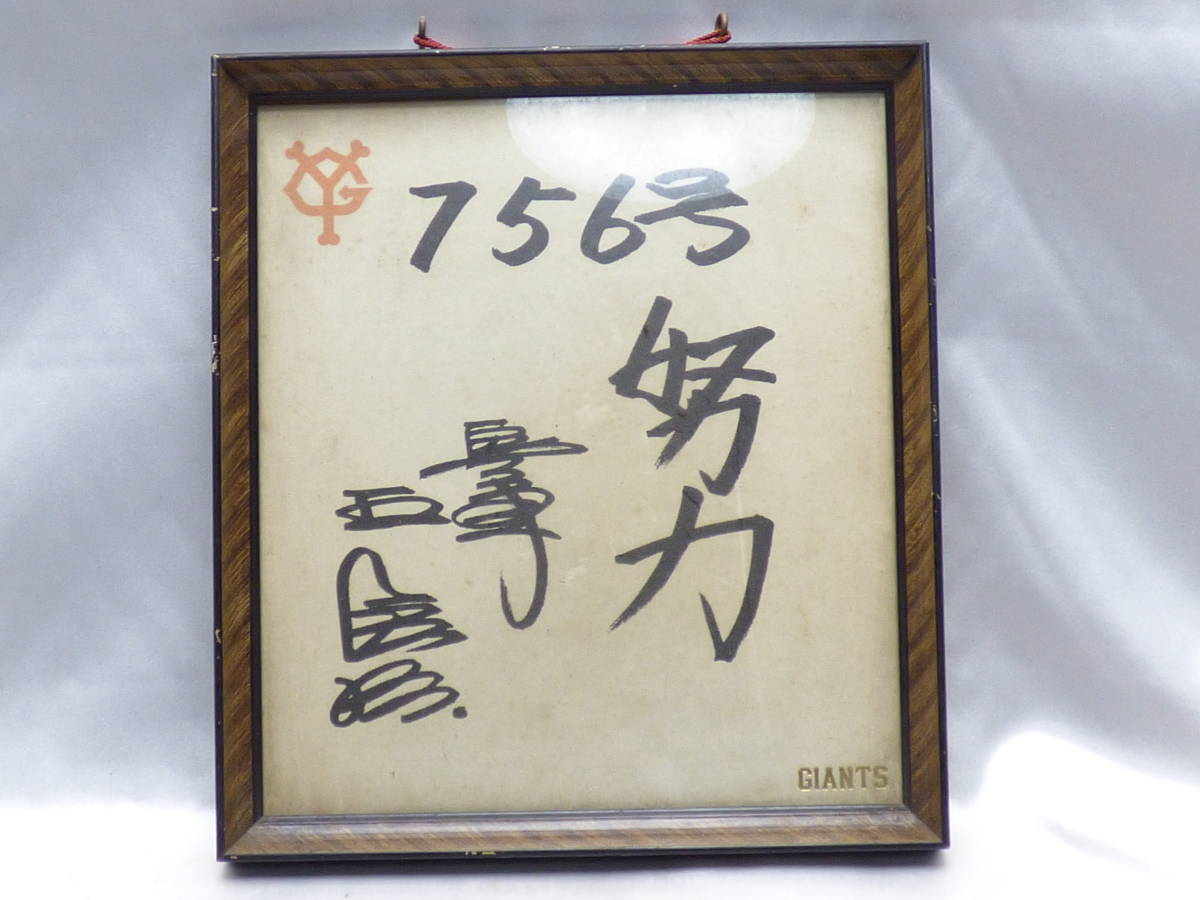 YG
756号
努力
GIANTS